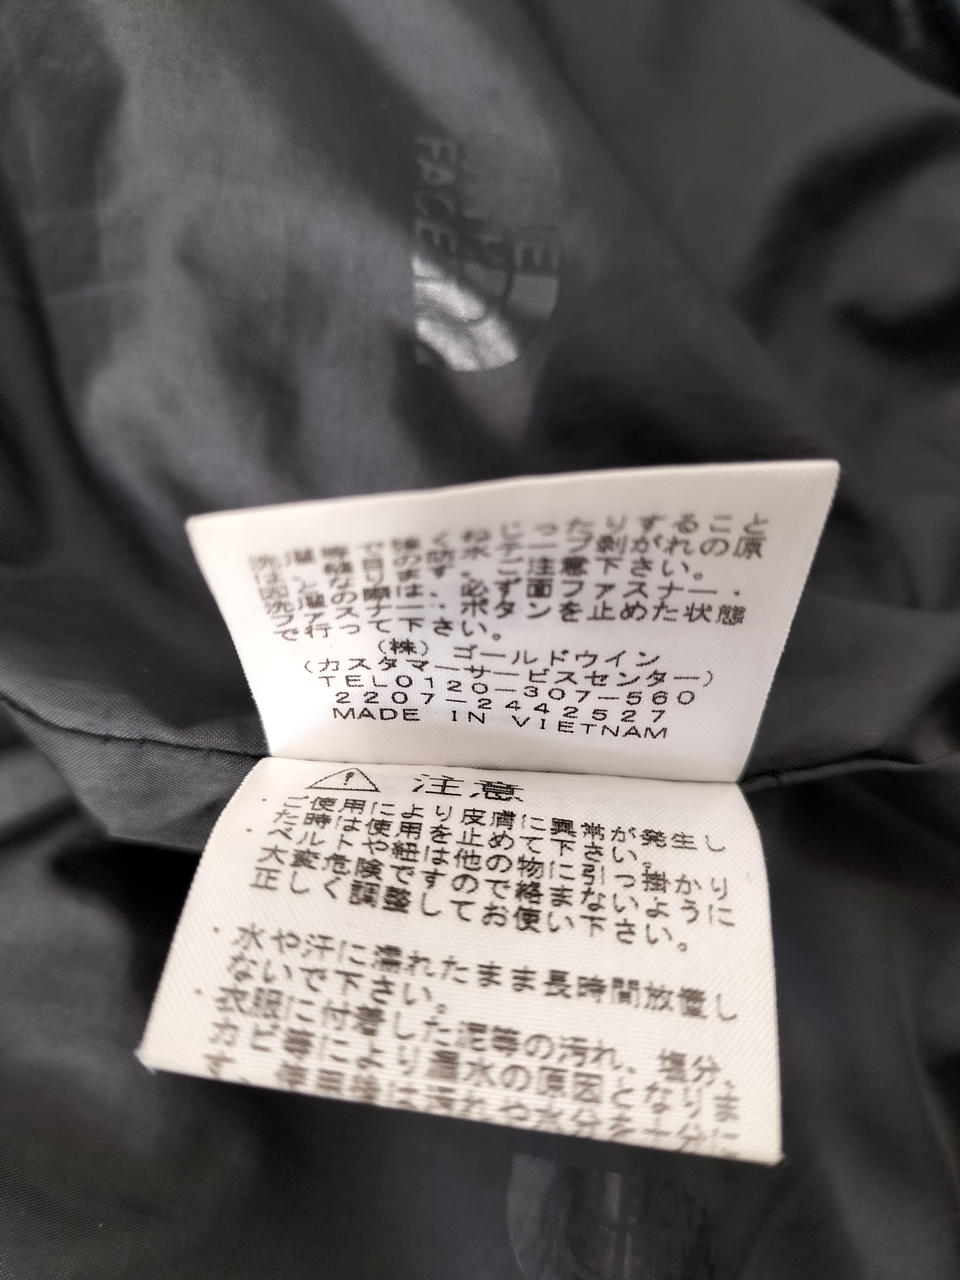 FACE
強くねじったりすること
は 防水テープ剥がれの原
因となのます。ご注意下さい。
洗濯の際は、必ず面ファスナー・
ファスナー・ボタンを止めた状態
で行って下さい。
(株)ゴールドウイン
(カスタマーサービスセンター)
TEL0120-307-560
2207-2442527
MADE IN VIETNAM
注意
・ご使用により皮膚に異常が発生し
た時は使用を止めて下さい。
・ベルトや紐は他の物に引っ掛かり
大変危険ですので絡まないように
正しく調整してお使い下さい。
・水や汗に濡れたまま長時間放置し
ないで下さい。
・衣服に付着した泥等の汚れ、塩分、
カビ等により漏水の原因となりま
す。使用後は汚れや水分を十分に